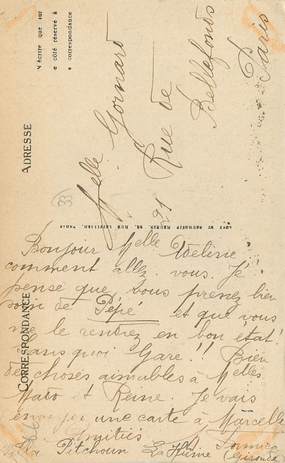 N'écrire que sur
le côté réservé à
la correspondance
ADRESSE
Melle Gornard
Rue de
Bellefonds
21
Paris
33
CORRESPONDANCE
Bonjour Melle Adeline
comment allez vous. Je
pense que vous prenez bien
soin de Pépé et que vous
me le rendrez en bon état!
Sans quoi Gare!! Bien
des choses aimables à Melles
Mado et Reine. Je vais
envoyer une carte à Marcelle
Amitiés
Pitchoun
Gironde